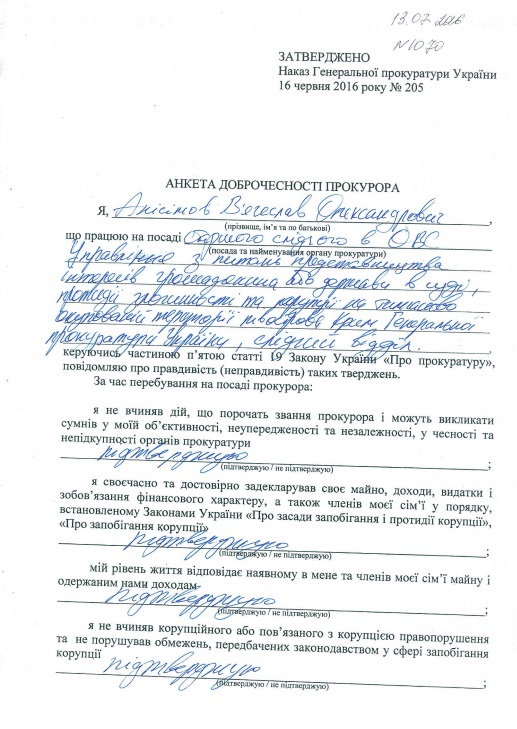 13.07 2016
N1070
ЗАТВЕРДЖЕНО
Наказ Генеральної прокуратури України
16 червня 2016 року № 205
АНКЕТА ДОБРОЧЕСНОСТІ ПРОКУРОРА
Я, Анісімов В'ячеслав Олександрович,
(прізвище, ім’я та по батькові)
що працюю на посаді старшого слідчого в ОВС
(посада та найменування органу прокуратури)
Управління з питань представництва
інтересів громадянина або держави в суді,
протидії злочинності та корупції на тимчасово
окупованій території півострова Крим Генеральної
прокуратури України, слідчий відділ.,
керуючись частиною п’ятою статті 19 Закону України «Про прокуратуру»,
повідомляю про правдивість (неправдивість) таких тверджень.
За час перебування на посаді прокурора:
я не вчиняв дій, що порочать звання прокурора і можуть викликати
сумнів у моїй об’єктивності, неупередженості та незалежності, у чесності та
непідкупності органів прокуратури
підтверджую;
(підтверджую / не підтверджую)
я своєчасно та достовірно задекларував своє майно, доходи, видатки і
зобов’язання фінансового характеру, а також членів моєї сім’ї у порядку,
встановленому Законами України «Про засади запобігання і протидії корупції»,
«Про запобігання корупції»
підтверджую;
(підтверджую / не підтверджую)
мій рівень життя відповідає наявному в мене та членів моєї сім’ї майну і
одержаним нами доходам
підтверджую;
(підтверджую / не підтверджую)
я не вчиняв корупційного або пов’язаного з корупцією правопорушення
та не порушував обмежень, передбачених законодавством у сфері запобігання
корупції
підтверджую;
(підтверджую / не підтверджую)